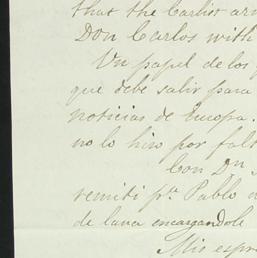 that the Carlist ar
Don Carlos with
Un papel de los
que debe salir para
noticias de Europa.
no lo hizo por falt
Con Dn
remiti pr. Pablo
de lana encargandole
Mis espre